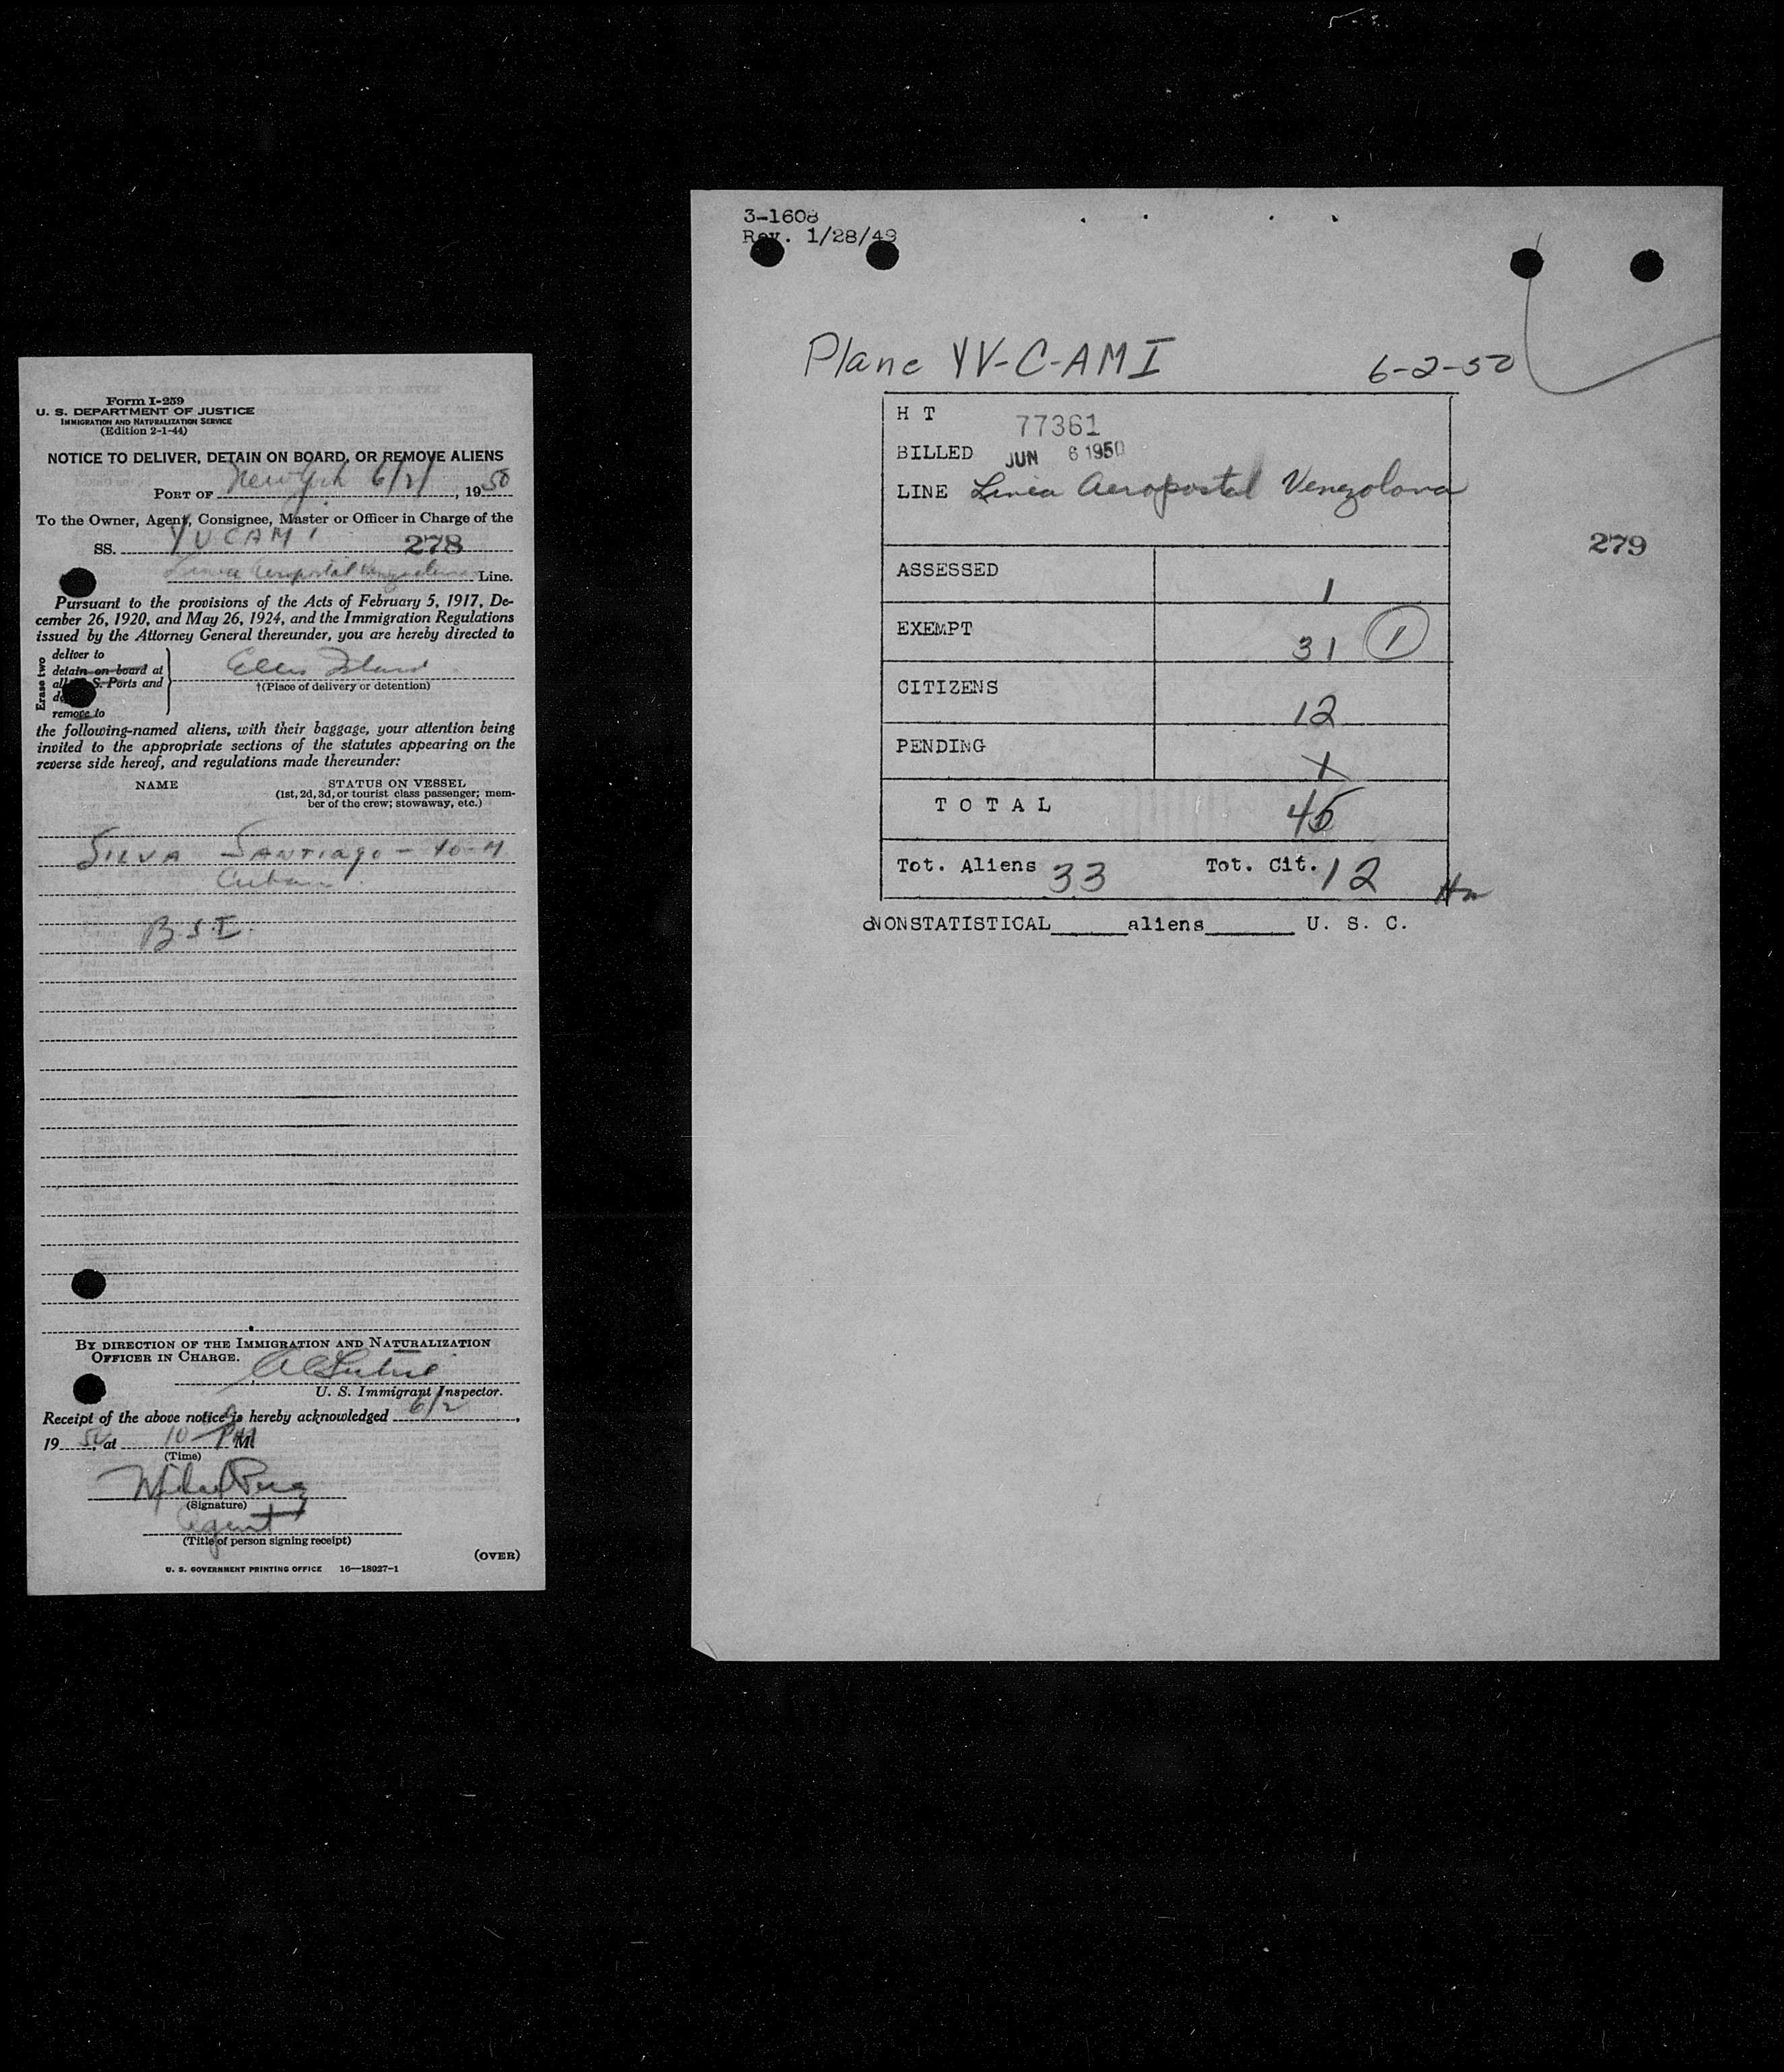 Form I-259
U. S. DEPARTMENT OF JUSTICE
IMMIGRATION AND NATURALIZATION SERVICE
(Edition 2-1-44)
NOTICE TO DELIVER, DETAIN ON BOARD, OR REMOVE ALIENS
PORT OF New York 6/2/, 1950
To the Owner, Agent, Consignee, Master or Officer in Charge of the
SS. YVCAMI 278
Linea Aeropostal Line.
Pursuant to the provisions of the Acts of February 5, 1917, De-
cember 26, 1920, and May 26, 1924, and the Immigration Regulations
issued by the Attorney General thereunder, you are hereby directed to
Erase two
deliver to
detain on board at
all S. Ports and
remove to
Ellis Island
†(Place of delivery or detention)
the following-named aliens, with their baggage, your attention being
invited to the appropriate sections of the statutes appearing on the
reverse side hereof, and regulations made thereunder:
NAME STATUS ON VESSEL
(1st, 2d, 3d, or tourist class passenger; mem-
ber of the crew; stowaway, etc.)
SILVA SANTIAGO - 40-M
Cuban
B.S.I.
BY DIRECTION OF THE IMMIGRATION AND NATURALIZATION
OFFICER IN CHARGE.
U. S. Immigrant Inspector.
Receipt of the above notice is hereby acknowledged 6/2,
1950, at 10 PM
(Time)
(Signature)
Agent
(Title of person signing receipt)
(OVER)
U. S. GOVERNMENT PRINTING OFFICE 16—18027-1
3-1608
Rev. 1/28/49
Plane YV-C-AMI 6-2-50
H T 77361
BILLED JUN 6 1950
LINE Linea Aeropostal Venezolana
279
ASSESSED 1
EXEMPT 31 1
CITIZENS 12
PENDING 1
TOTAL 45
Tot. Aliens 33 Tot. Cit. 12
NONSTATISTICAL aliens U. S. C.